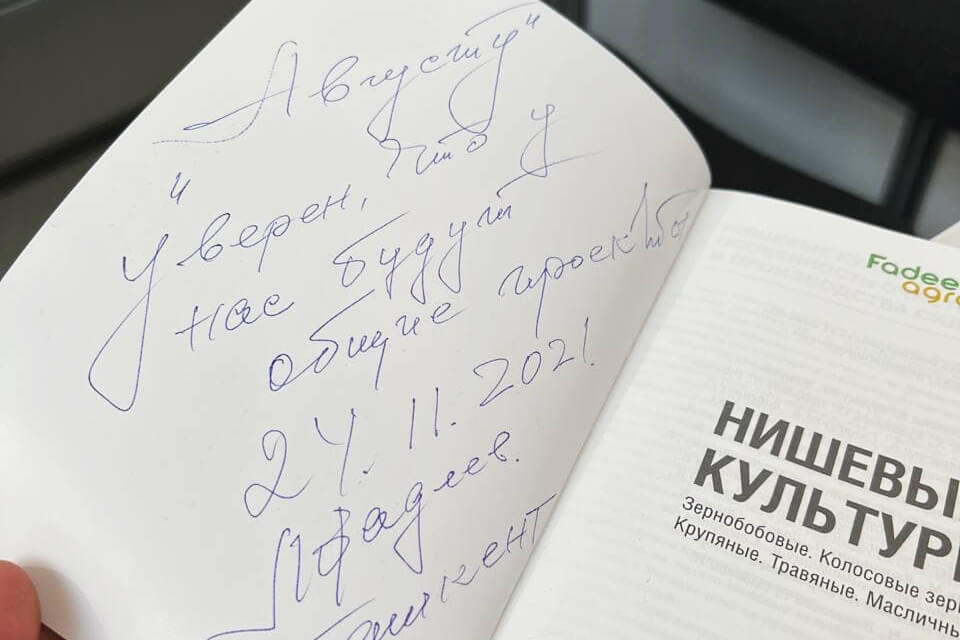 "Августу"
Уверен, что у
нас будут
общие проекты
24.11.2021.
Л Фадеев.
Ташкент
Fadee
agro
НИШЕВЫ
КУЛЬТУР
Зернобобовые. Колосовые зер
Крупяные. Травяные. Масличны